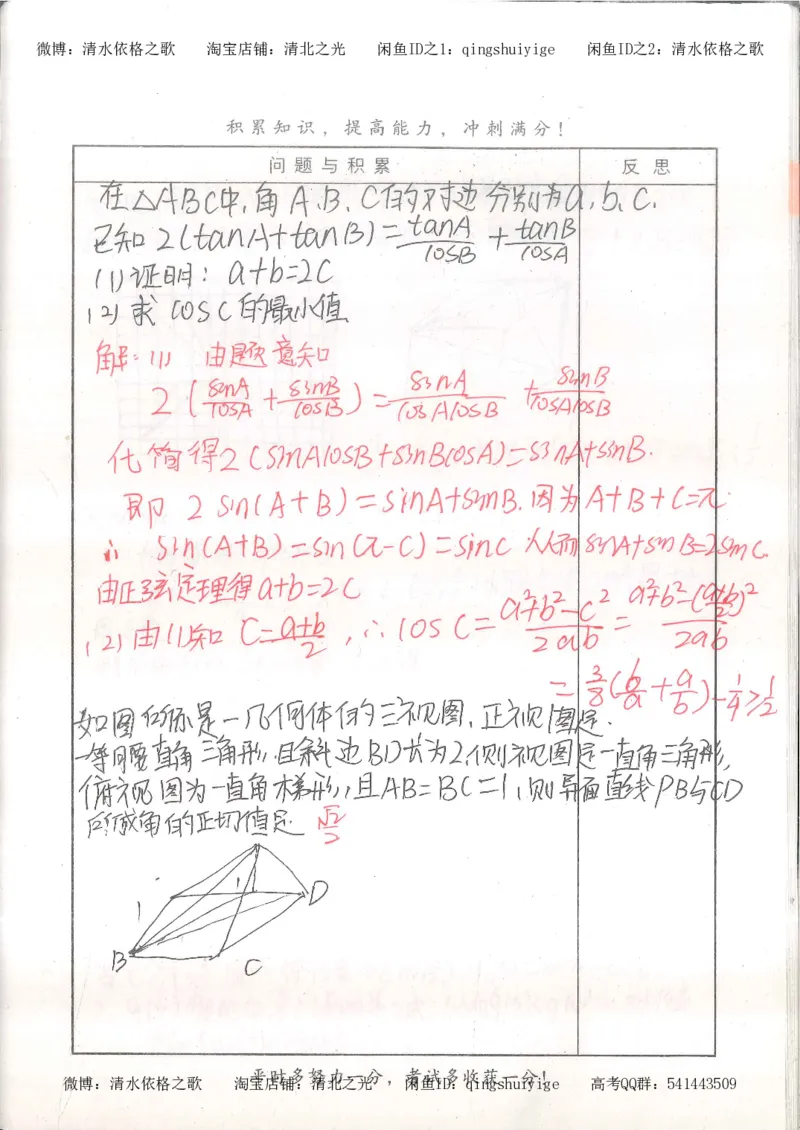 微博：清水依格之歌 淘宝店铺：清北之光 闲鱼ID之1：qingshuiyige 闲鱼ID之2：清水依格之歌
积累知识，提高能力，冲刺满分！
问题与积累 反思
在△ABC中,角A、B、C的对边分别为a、b、c.
已知2(tanA+tanB)=tanA/cosB+tanB/cosA
(1)证明：a+b=2c
(2)求cosC的最小值
解:(1) 由题意知
2(sinA/cosA+sinB/cosB)=sinA/cosAcosB+sinB/cosAcosB
化简得2(sinAcosB+sinBcosA)=sinA+sinB.
即 2sin(A+B)=sinA+sinB.因为A+B+C=π
∴ sin(A+B)=sin(π-C)=sinC 从而sinA+sinB=2sinC.
由正弦定理得a+b=2c
(2)由(1)知 c=a+b/2,∴cosC=a²+b²-c²/2ab=a²+b²-(a+b/2)²/2ab
=3/8(b/a+a/b)-1/4≥1/2
如图所示是一几何体的三视图,正视图是
一等腰直角三角形,且斜边BD长为2,侧视图是一直角三角形,
俯视图为一直角梯形,且AB=BC=1,则异面直线PB与CD
所成角的正切值是 √2/2
1
1
D
B
C
平时多努力一分，考试多收获一分！
微博：清水依格之歌 淘宝店铺：清北之光 闲鱼ID之1：qingshuiyige 高考QQ群：541443509